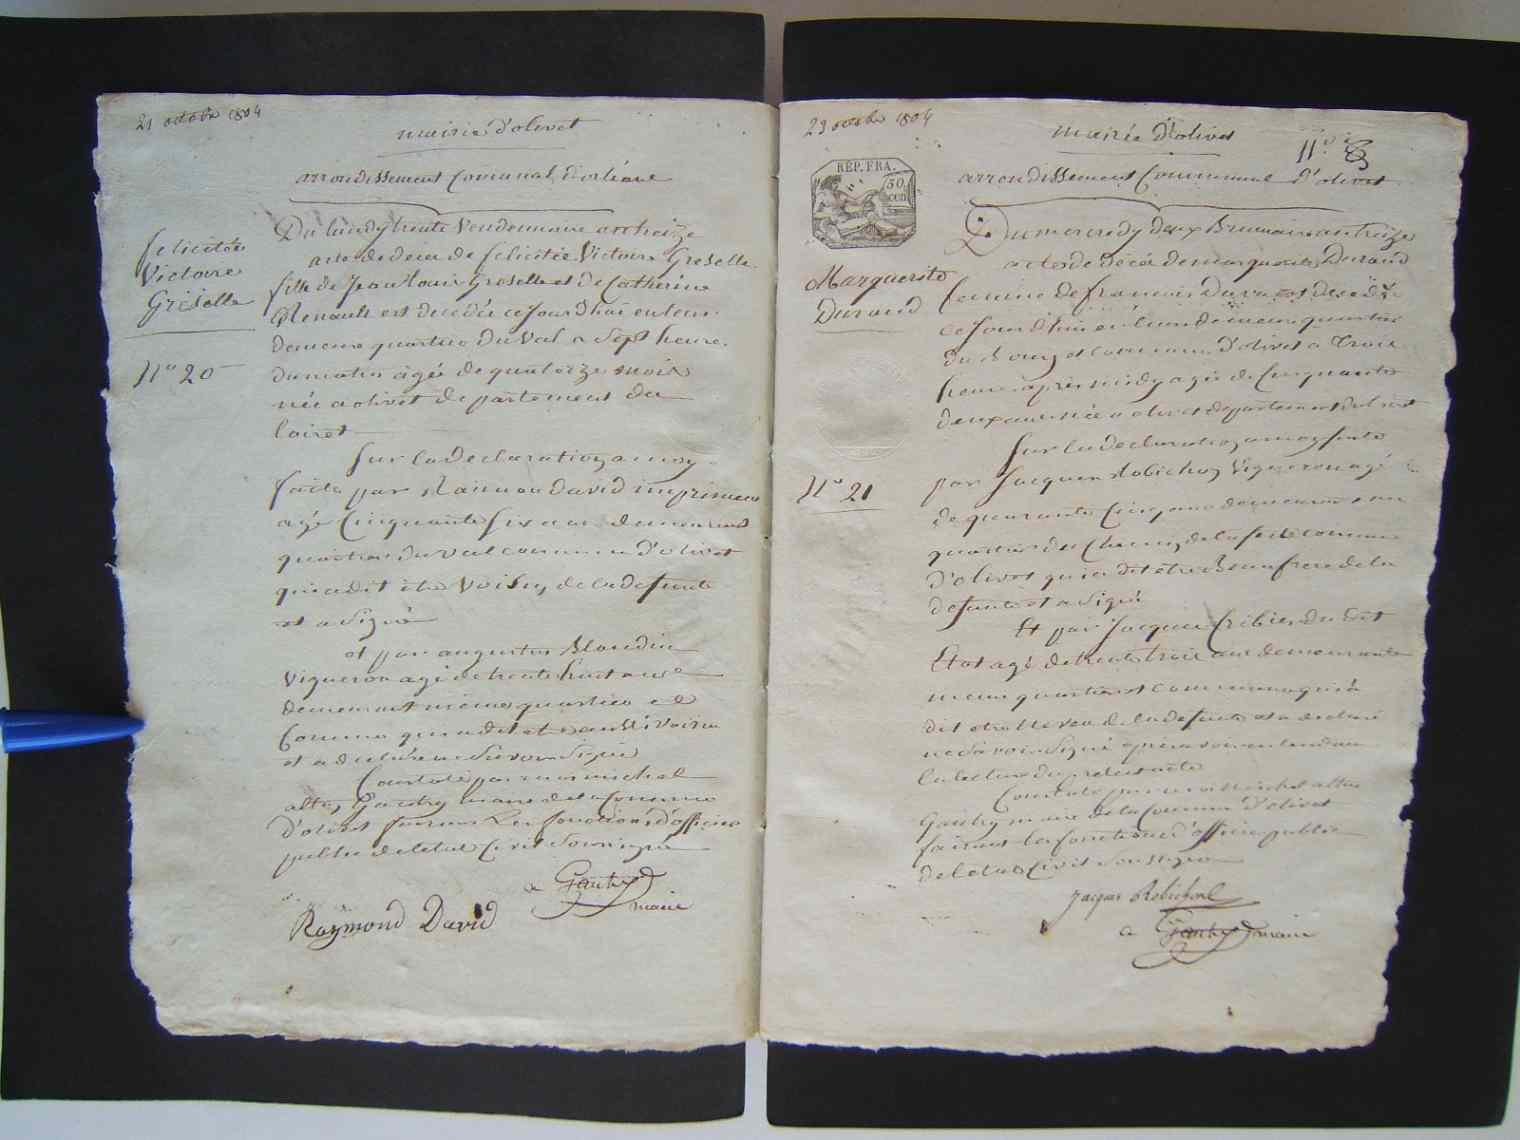 21 octobre 1804
mairie d'olivet
arrondissement Comunal d'orléans
felicitée
Victoire
Greselle
N° 20
Du lundy trente Vendemiaire an treize
acte de décès de felicitée Victoire Greselle
fille de Jean Louis Greselle et de Catherine
Renault est decedée ce Jourd'hui en leur
demeure quartier du Val a Sept heure
du matin agée de quatorze mois
née a olivet departement du
loiret
Sur la declaration a moy
faite par Raimon david imprimeur
agé Cinquante six ans demeurant
quartier du val commune d'olivet
qui a dit être Voisin de la defunte
et a Signé
et par augustin Blondin
Vigneron agé de trente huit ans
demeurant même quartier et
Commune qui a dit etre aussi voisin
et a declaré ne Savoir Signé
Constaté par moi michel
altin Gautry maire de la Comune
d'olivet faisant Les fonctions d'officier
public de l'etat Civil Soussigné
a Gautry
maire
Raymond David
23 octobre 1804
mairie d'olivet
arrondissement Communal d'olivet
REP. FRA.
50
cen
Marguerite
Durand
N° 21
Du mercredy deux Brumaire an treize
acte de décès de marguerite Durand
femme de francois
ce Jourd'hui en leur demeure quartier
du Bourg et commune d'olivet a Trois
heure après midy agée de Cinquante
deux ans née a olivet departement du loiret
Sur la declaration a moy faite
par Jacques Robichon Vigneron agé
de quarante Cinq ans demeurant au
quartier du Champ de la commune
d'olivet qui a dit être Beau frere de la
defunte et a Signé
Et par Jacques Cribier du dit
Etat agé de trente trois ans demeurant
meme quartier et commune qui a
dit etre Neveu de la defunte et a declaré
ne Savoir Signé après avoir entendu
la lecture du present acte
Constaté par moi michel altin
Gautry maire de la Comune d'olivet
faisant les fonctions d'officier public
de l'etat Civil Soussigné
Jacques Robichon
a Gautry maire